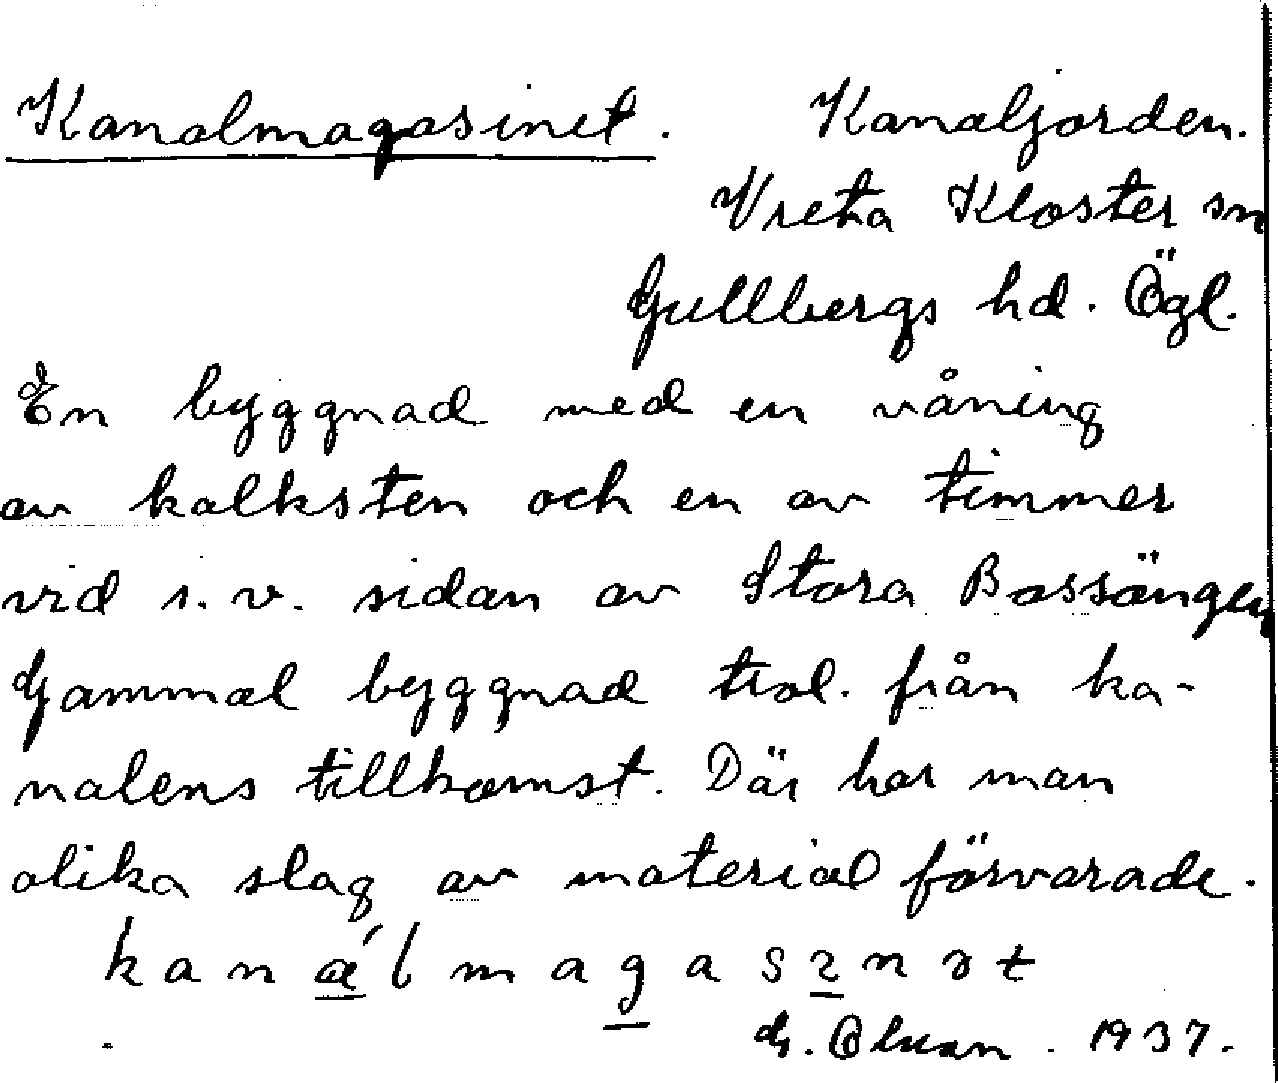 Kanalmagasinet. Kanaljorden.
Vreta Kloster sn
Gullbergs hd. Ögl.
En byggnad med en våning
av kalksten och en av timmer
vid s.v. sidan av Stora Bassängen
Gammal byggnad trol. från ka-
nalens tillkomst. Där har man
olika slag av material förvarade.
1937.